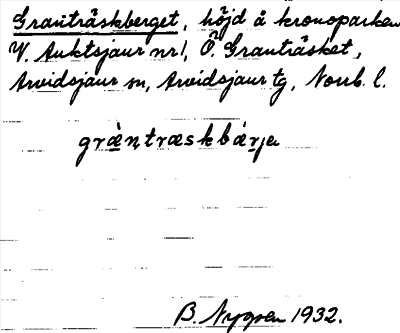 Granträskberget, höjd å kronoparken
V. Auktsjaur nr 1, Ö. Granträsket,
Arvidsjaur sn, Arvidsjaur tg, Norrb. l.
gràntræskbǽrje
B. Nygren 1932.